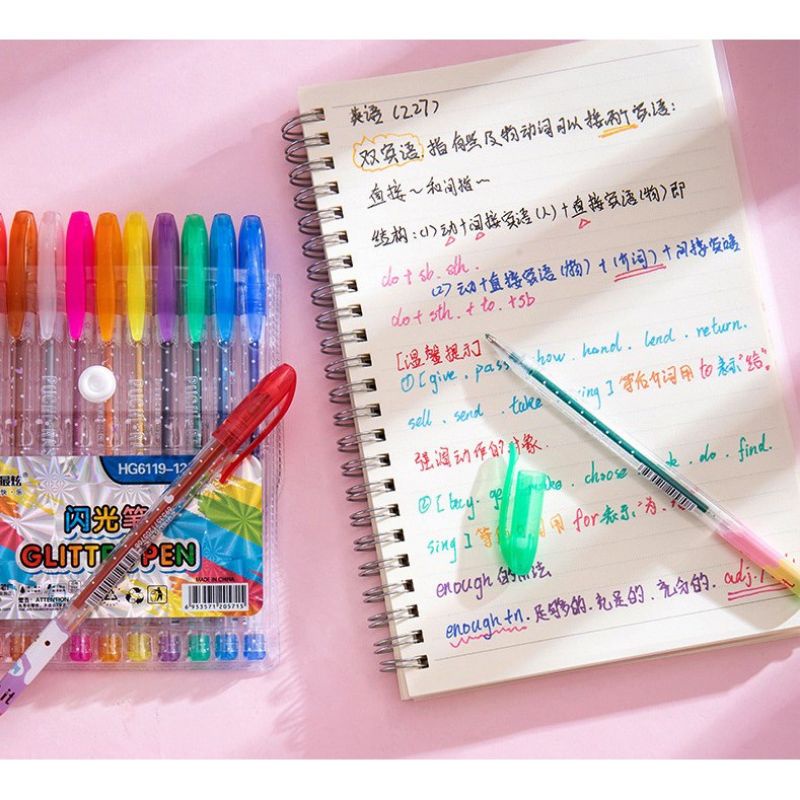 英语(227)
双宾语:指有些及物动词可以接两个宾语:
直接~和间接~
结构:(1)动+间接宾语(人)+直接宾语(物)即
do + sb. sth.
(2)动+直接宾语(物)+(介词)+间接宾语
do + sth. + to. + sb
[温馨提示]
①[give. pass. how. hand. lend. return.
sell. send. take. ing]等后介词用to表示"给"。
强调动作的对象.
②[buy. ge ke. choose. k. do. find.
sing]等 用for表示"为、
enough的用法
enough+n.足够的.充足的.充分的. adj.
HG6119-12
闪光笔
GLITTER PEN
ATTENTION
MADE IN CHINA
6933571205715